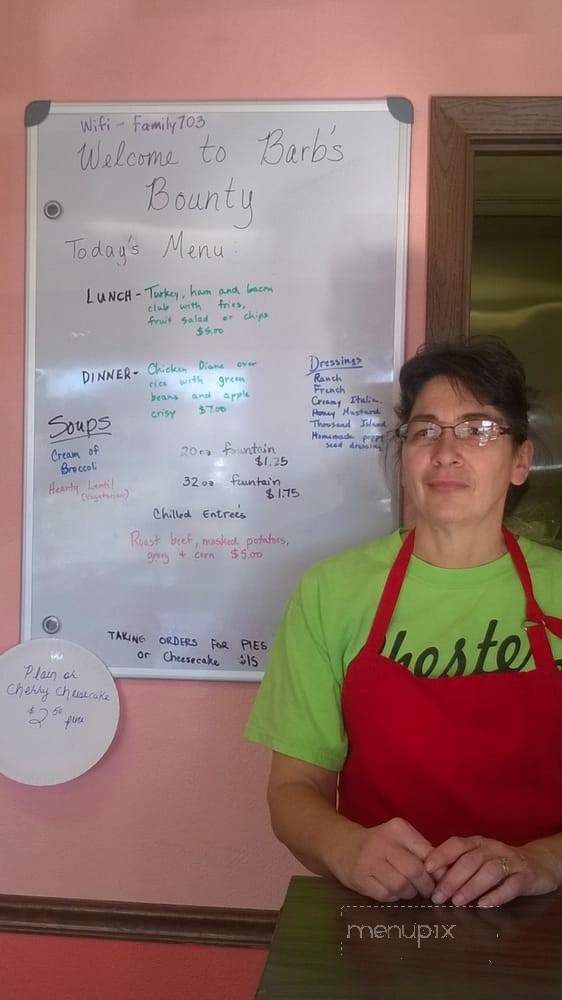 Wifi - Family703
Welcome to Barb's
Bounty
Today's Menu:
LUNCH - Turkey, ham and bacon
club with fries,
fruit salad or chips
$5.00
DINNER - Chicken Diane over
rice with green
beans and apple
crisp $7.00
Dressings
Ranch
French
Creamy Italia
Honey Mustard
Thousand Island
Homemade poppy
seed dressing
Soups
Cream of
Broccoli
Hearty Lentil
(Vegetarian)
20 oz fountain
$1.25
32 oz fountain
$1.75
Chilled Entree's
Roast beef, mashed potatoes,
gravy + corn $5.00
TAKING ORDERS FOR PIES
or Cheesecake $15
Plain or
Cherry Cheesecake
$2.50
Cheste
menupix